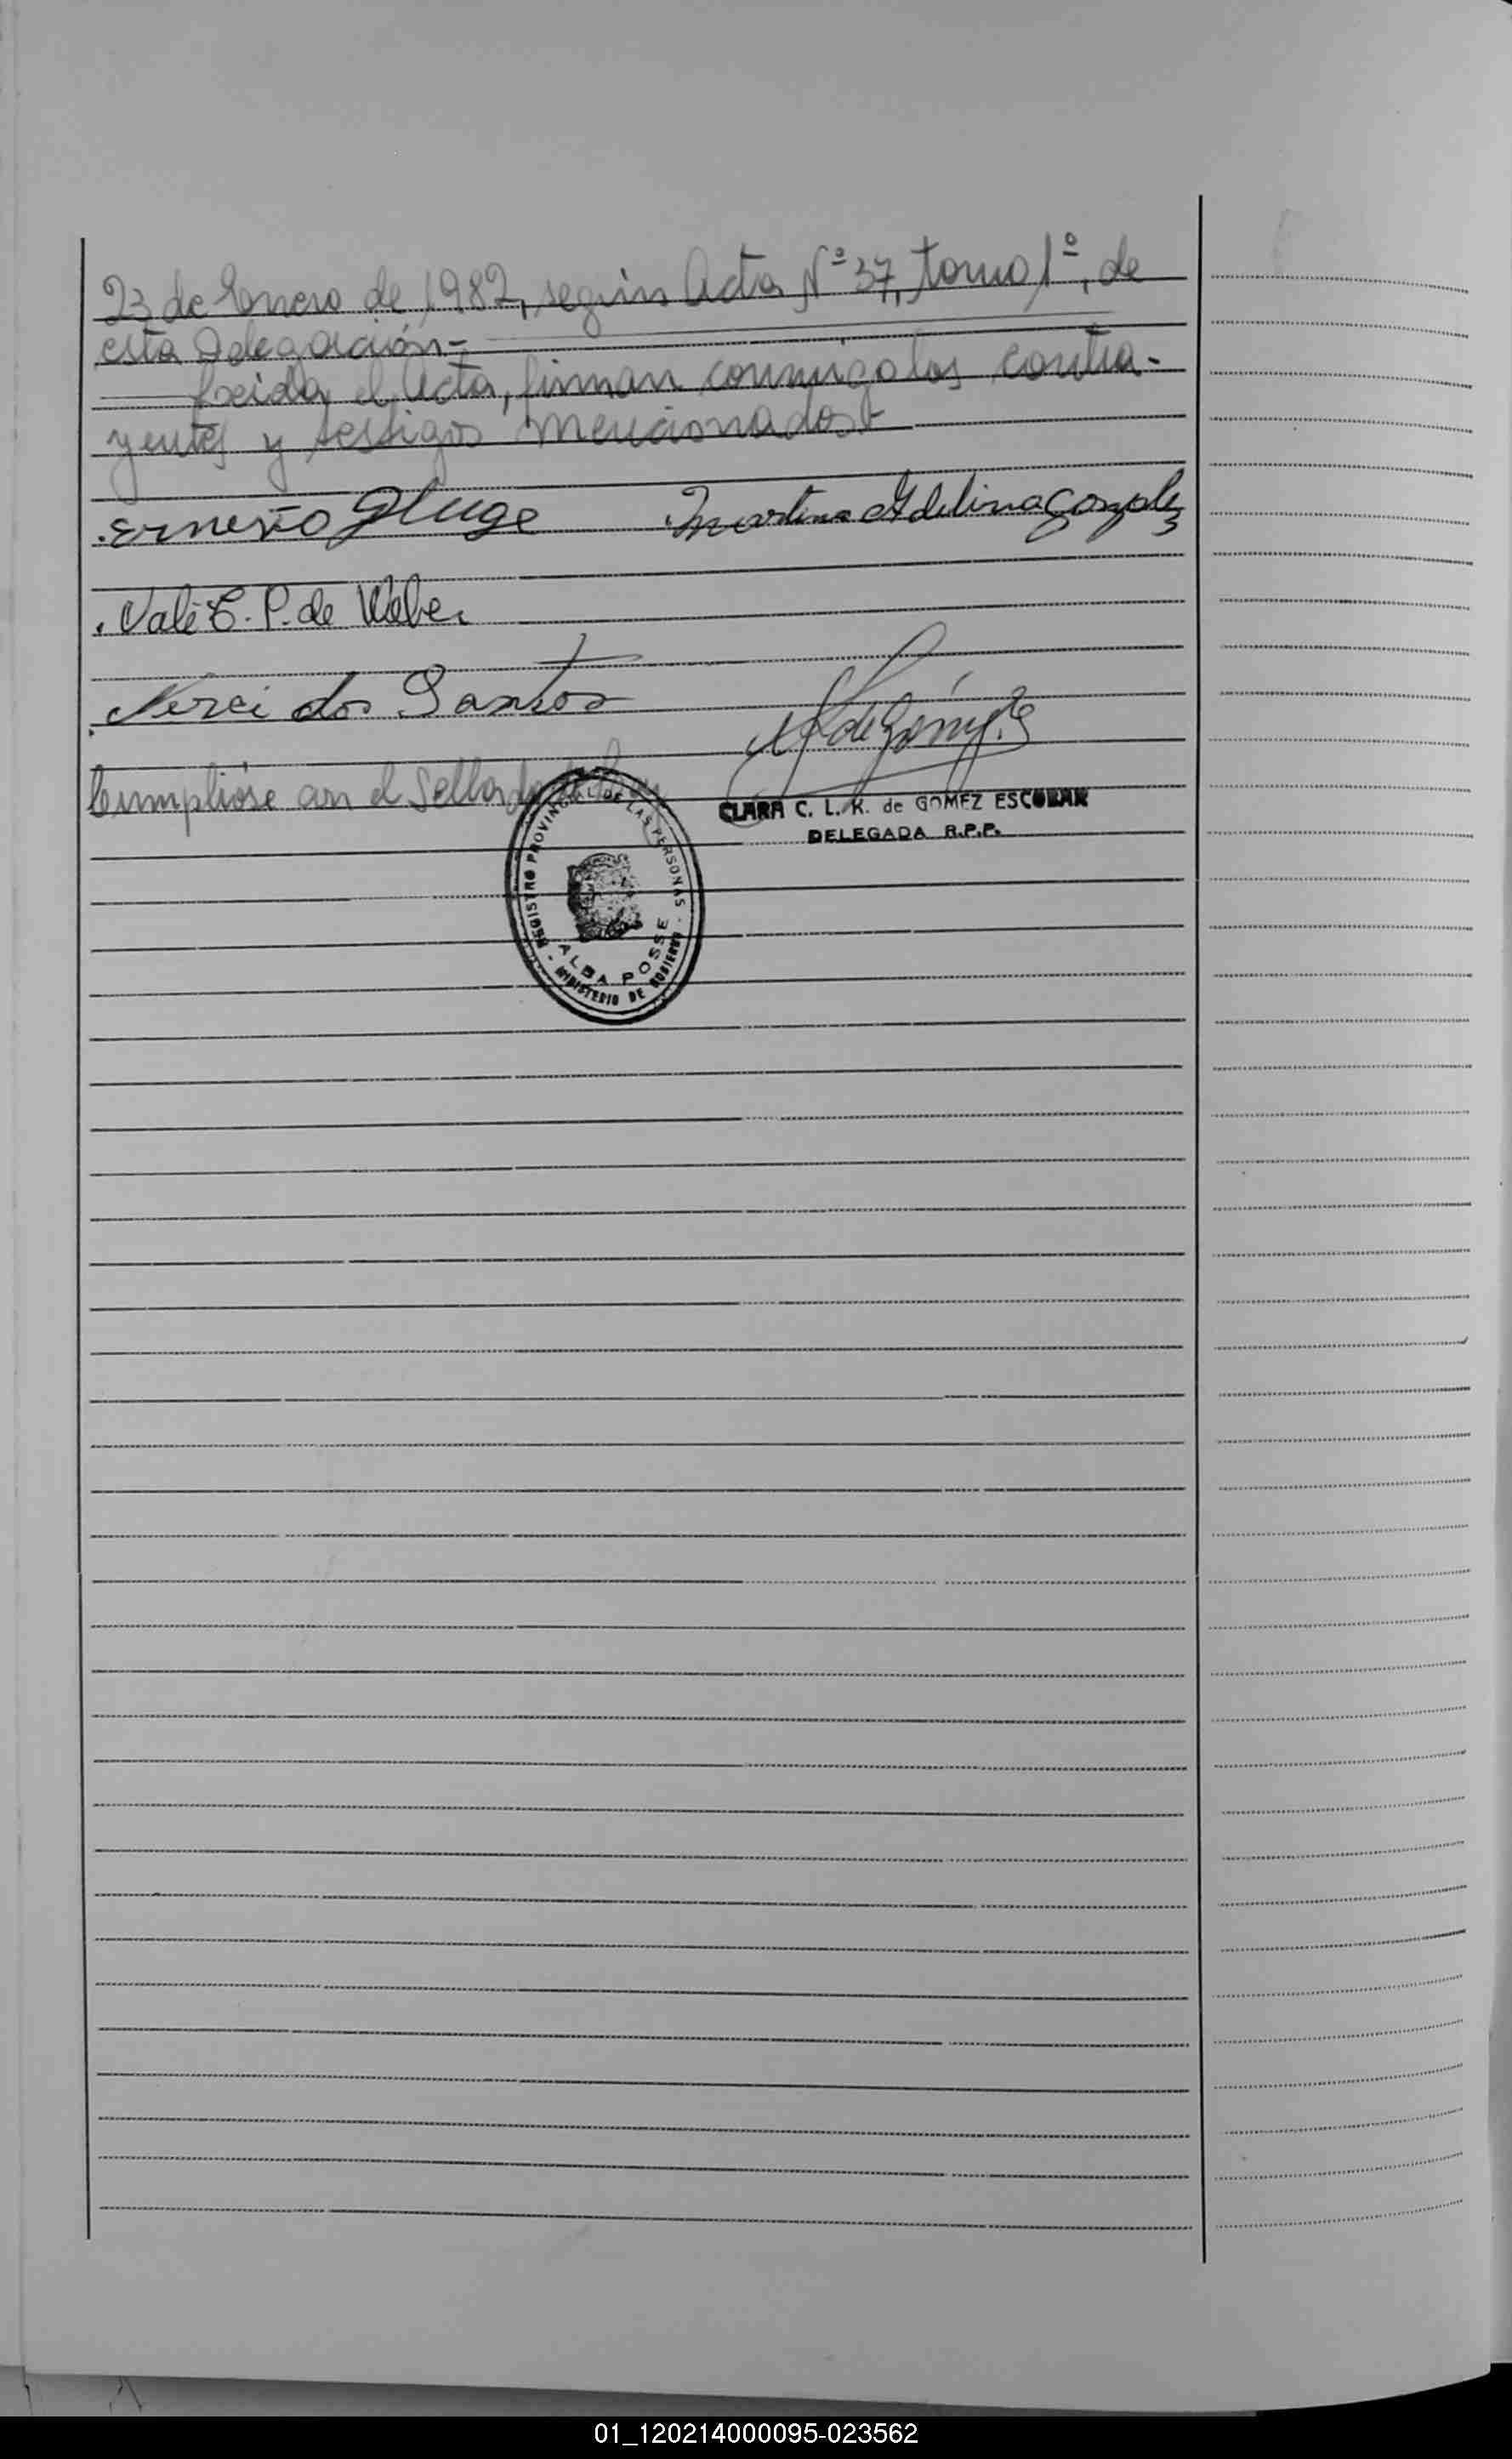 23 de Enero de 1982, según Acta Nº 37, tomo 1º, de
esta Delegación.-
Leida el Acta, firman conmigo los contra-
yentes y testigos mencionados.-
Ernesto Gluge Martina Adelina Gonzalez
Vali C. P. de Weber
Nerci dos Santos
Cumplióse con el Sellado de Ley
CLARA C. L. K. de GOMEZ ESCOBAR
DELEGADA R.P.P.
REGISTRO PROVINCIAL DE LAS PERSONAS
ALBA POSSE
MINISTERIO DE GOBIERNO
01_120214000095-023562